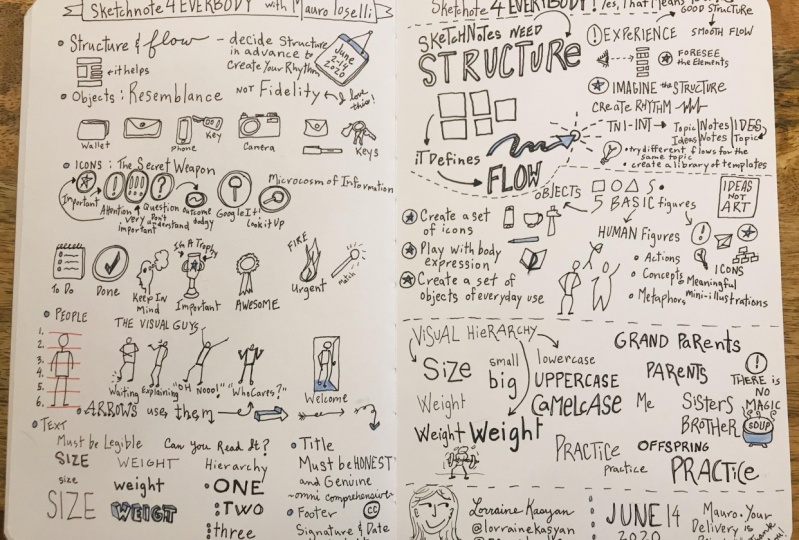 Sketchnote 4 EVERYBODY with Mauro Toselli
Structure & flow - decide Structure
in advance to
Create Your Rhythm
it helps
June
2-14
2020
Objects: Resemblance NOT Fidelity
I love
this!
Wallet
Phone
Key
Camera
Keys
ICONS: The Secret Weapon
Microcosm of Information
Important
Attention
very
important
Question
Don't
understand
outcome
dodgy
Google It!
look it Up
To Do
Done
Keep In
Mind
In A Trophy
Important
AWESOME
FIRE
Urgent
Match
PEOPLE
THE VISUAL GUYS
1.
2.
3.
4.
5.
6.
Waiting
Explaining
"OH NOOO!"
"Who Cares?"
Welcome
ARROWS use them
TEXT
Must be Legible Can you Read It?
SIZE WEIGHT Hierarchy
size weight ONE
SIZE WEIGT :TWO
three
Title
Must be HONEST
and Genuine
Footer CC
Signature & Date
Sketchnote 4 EVERYBODY! Yes, That Means
GOOD STRUCTURE
SMOOTH FLOW
SKETCHNOTES NEED
STRUCTURE
iT Defines
FLOW
! EXPERIENCE
FORESEE
the Elements
IMAGINE the STRUCTURE
CREATE RHYTHM
TNI-INT
Topic Notes IDEAS
Ideas Notes Topic
try different flows for the
same topic
create a library of templates
OBJECTS
5 BASIC figures
IDEAS
NOT
ART
Create a set
of icons
Play with body
expression
Create a set of
objects of everyday use
HUMAN Figures
Actions
Concepts
Metaphors
ICONS
Meaningful
mini-illustrations
VISUAL HIERARCHY
Size small
big
Weight
Weight Weight
lowercase
UPPERCASE
CamelCASE
GRAND PARENTS
PARENTS
Me Sisters
BROTHER
OFFSPRING
PRACTICE
practice
PRACTICE
!
THERE is
NO
MAGIC
SOUP
Lorraine Kasyan
@lorrainekasyan
JUNE 14
2020
Mauro. Your
Delivery is